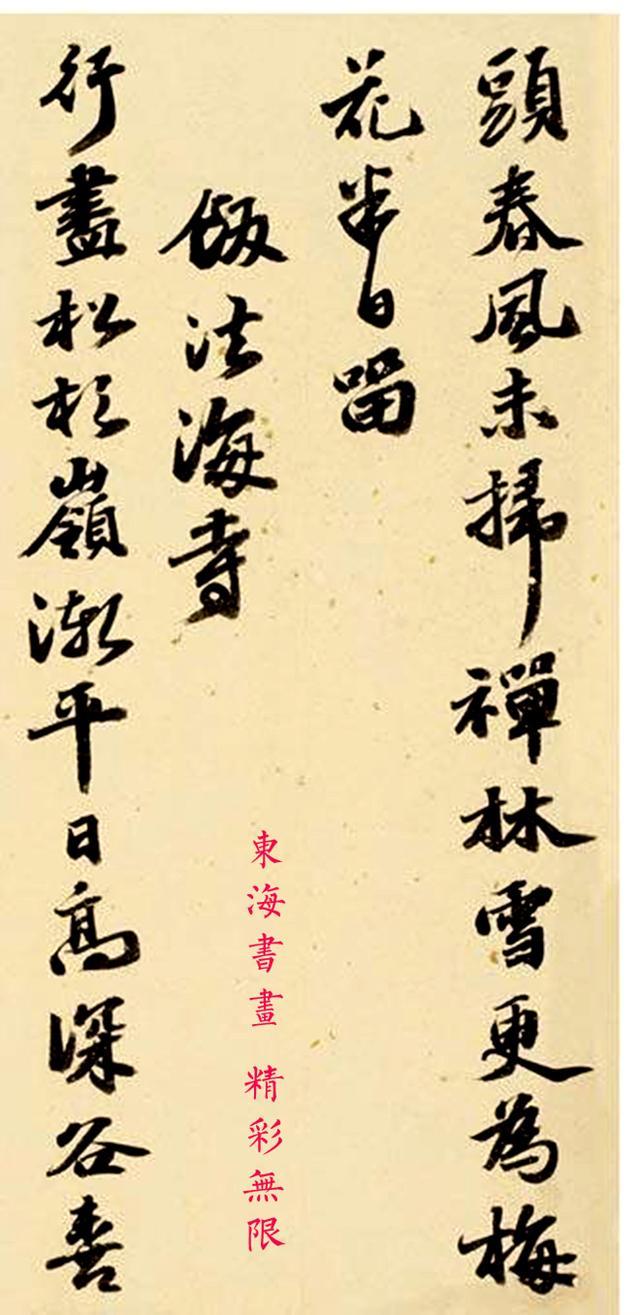 頭春風未掃禪林雪更為梅
花半日留
飯法海寺
行盡松杉嶺漸平日高深谷喜
東海書畫 精彩無限